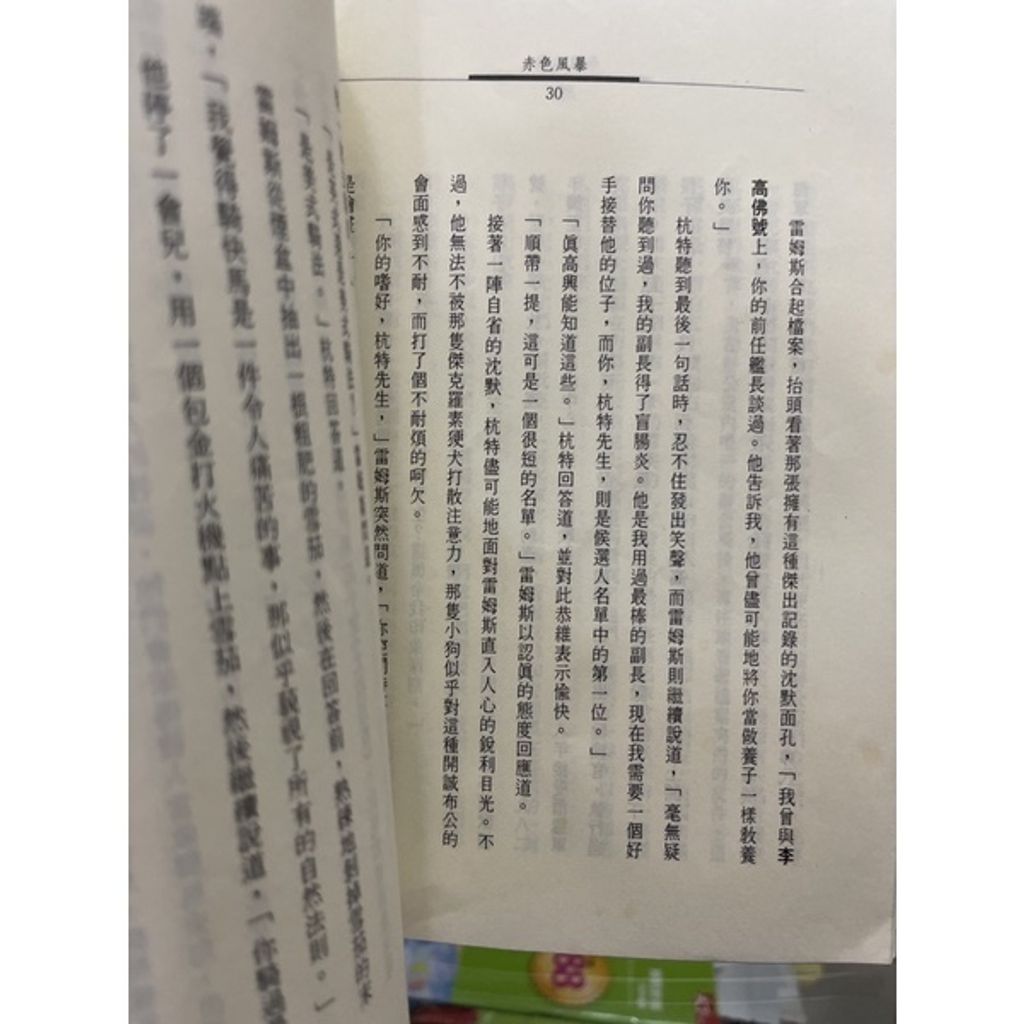 赤色風暴
30
雷姆斯合起檔案，抬頭看著那張擁有這種傑出記錄的沈默面孔，「我曾與李
高佛號上，你的前任艦長談過。他告訴我，他曾儘可能地將你當做養子一樣教養
你。」
杭特聽到最後一句話時，忍不住發出笑聲，而雷姆斯則繼續說道，「毫無疑
問你聽到過，我的副長得了盲腸炎。他是我用過最棒的副長，現在我需要一個好
手接替他的位子，而你，杭特先生，則是候選人名單中的第一位。」
「眞高興能知道這些。」杭特回答道，並對此恭維表示愉快。
「順帶一提，這可是一個很短的名單。」雷姆斯以認眞的態度回應道。
接著一陣自省的沈默，杭特儘可能地面對雷姆斯直入人心的銳利目光。不
過，他無法不被那隻傑克羅素㹴犬打散注意力，那隻小狗似乎對這種開誠布公的
會面感到不耐，而打了個不耐煩的呵欠。
「你的嗜好，杭特先生，」雷姆斯突然問道，「你
「是美式騎法。」杭特回答道。
雷姆斯從煙盒中抽出一根粗肥的雪茄，然後在回答前，熟練地剝掉雪茄的末
「我覺得騎快馬是一件令人痛苦的事，那似乎藐視了所有的自然法則。」
他停了一會兒，用一個包金打火機點上雪茄，然後繼續說道，「你騎過
88